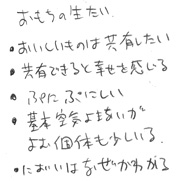 おもちの生たい
• おいしいものは共有したい
• 共有できると幸せを感じる
• ふにふにしい
• 基本空気よまないが
よむ個体も少しいる.
• においはなぜかわかる